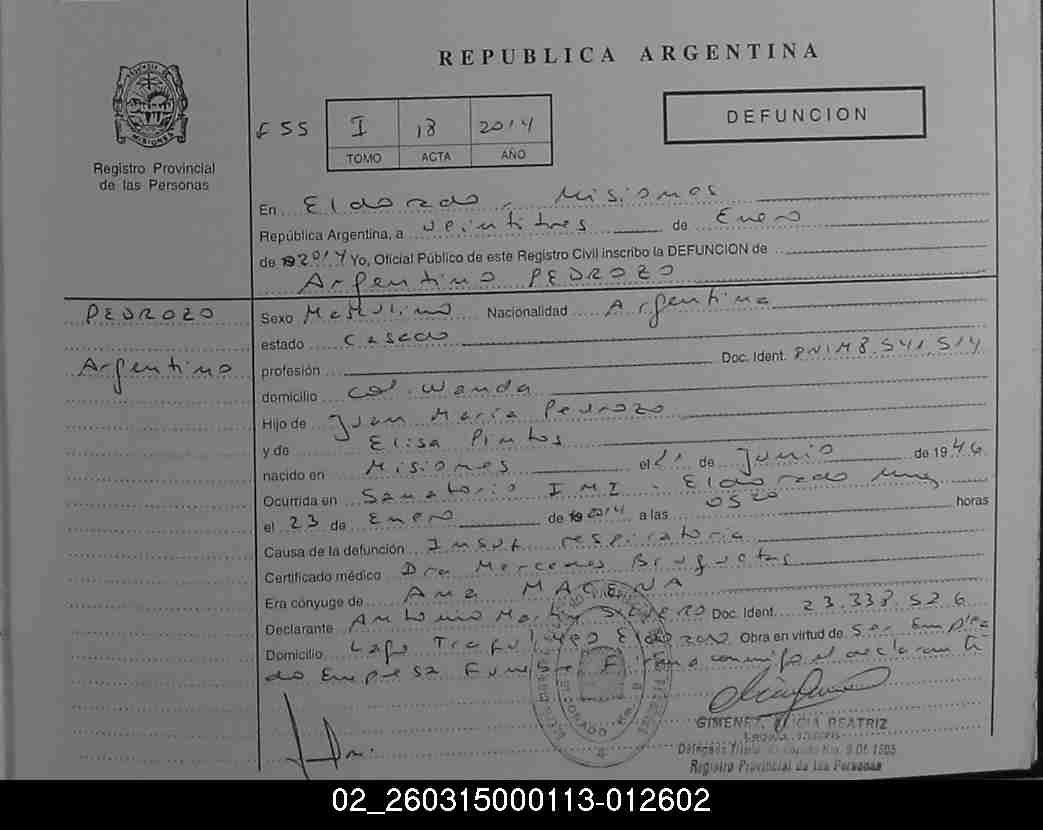 REPUBLICA ARGENTINA
MISIONES
Registro Provincial
de las Personas
F 55 I 18 2014
TOMO ACTA AÑO
DEFUNCION
En Eldorado, Misiones
República Argentina, a veintitres de Enero
de 2014 Yo, Oficial Público de este Registro Civil inscribo la DEFUNCION de
Argentino PEDROZO
PEDROZO
Argentino
Sexo Masculino Nacionalidad Argentina
estado Casado
profesión Doc. Ident. DNI M 8.541.514
domicilio Col. Wanda
Hijo de Juan María Pedrozo
y de Elisa Pintos
nacido en Misiones el 21 de Junio de 1946
Ocurrida en Sanatorio IMI - Eldorado Mnes
el 23 de Enero de 2014 a las 0520 horas
Causa de la defunción Insuf respiratoria
Certificado médico Dra Mercedes
Era cónyuge de Ana MACENA
Declarante Antonio Doc. Ident. 23.338.526
Domicilio Lago Eldorado Obra en virtud de Ser Emplea
do Empresa Funebre Firma conmigo el declarante
GIMENEZ, ALICIA BEATRIZ
Registro Provincial de las Personas
02_260315000113-012602